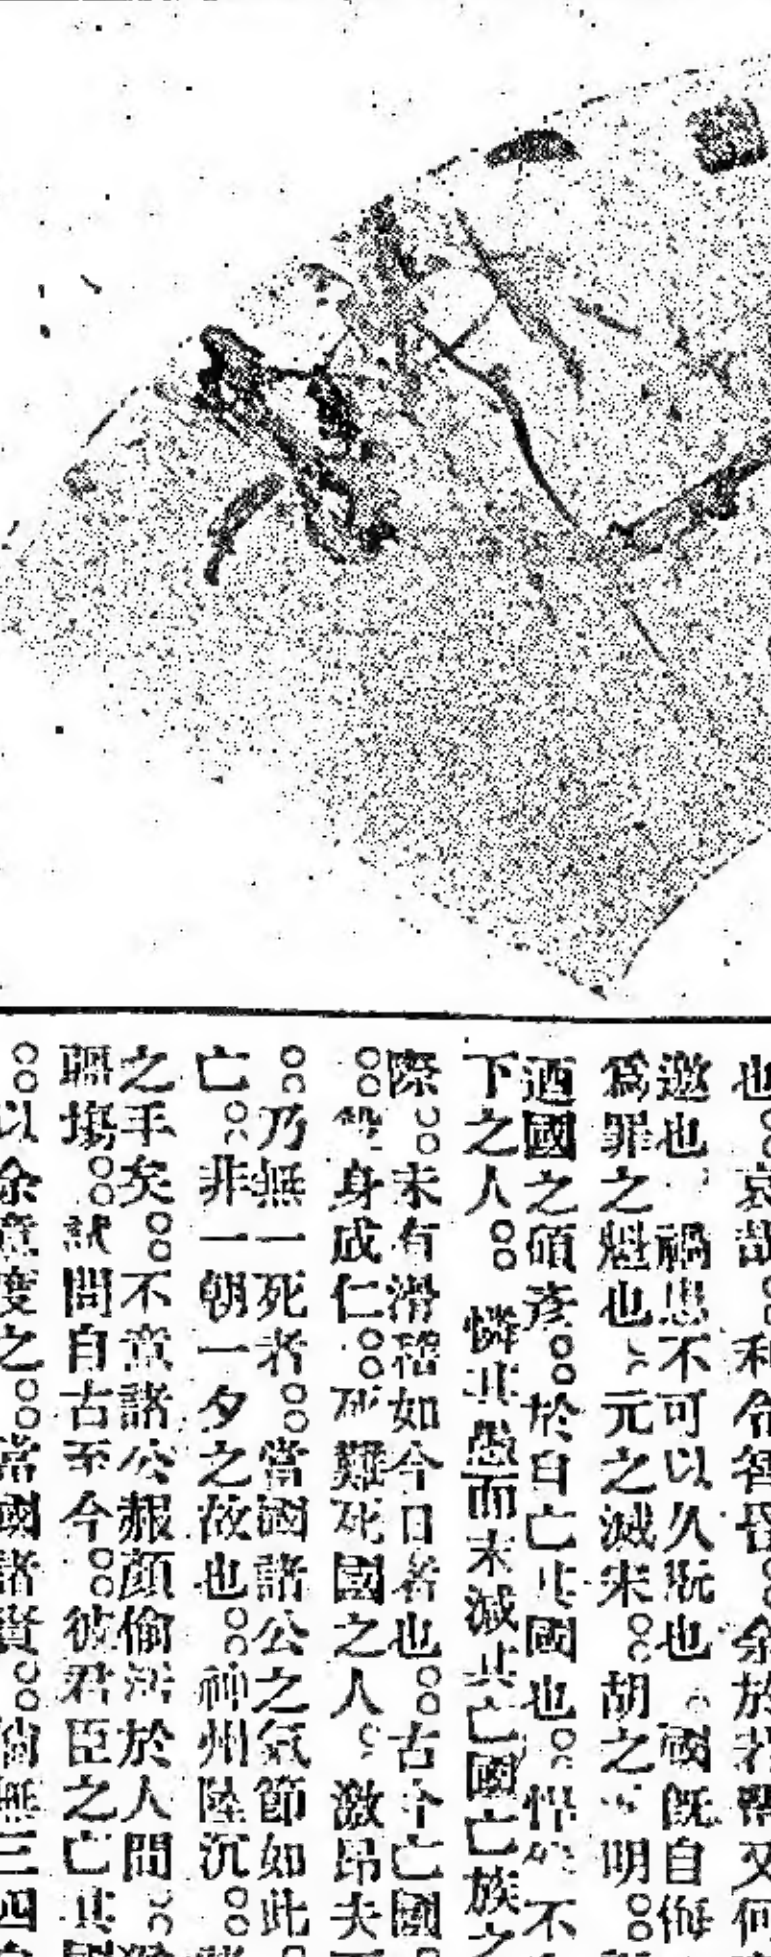 也○○哀哉○○利令智昏○○余於若輩又何
邀也 禍患不可以久翫也 國既自侮
爲罪之魁也 元之滅宋○○胡之 明○○
洒國之碩彥○○於自亡其國也○○悍 不
下之人○○憐其愚而未滅其亡國亡族之
際○○未有滑稽如今日者也○○古今亡國
○○ 身成仁○○死難死國之人 激昂夫
○○乃無一死者○○當國諸公之氣節如此
亡○○非一朝一夕之故也○○神州陸沉○○
之手矣○○不意諸公赧顏偷活於人間
疆場○○試問自古至今○○彼君臣之亡其國
○○以余意度之○○當國諸賢○○倘無三四